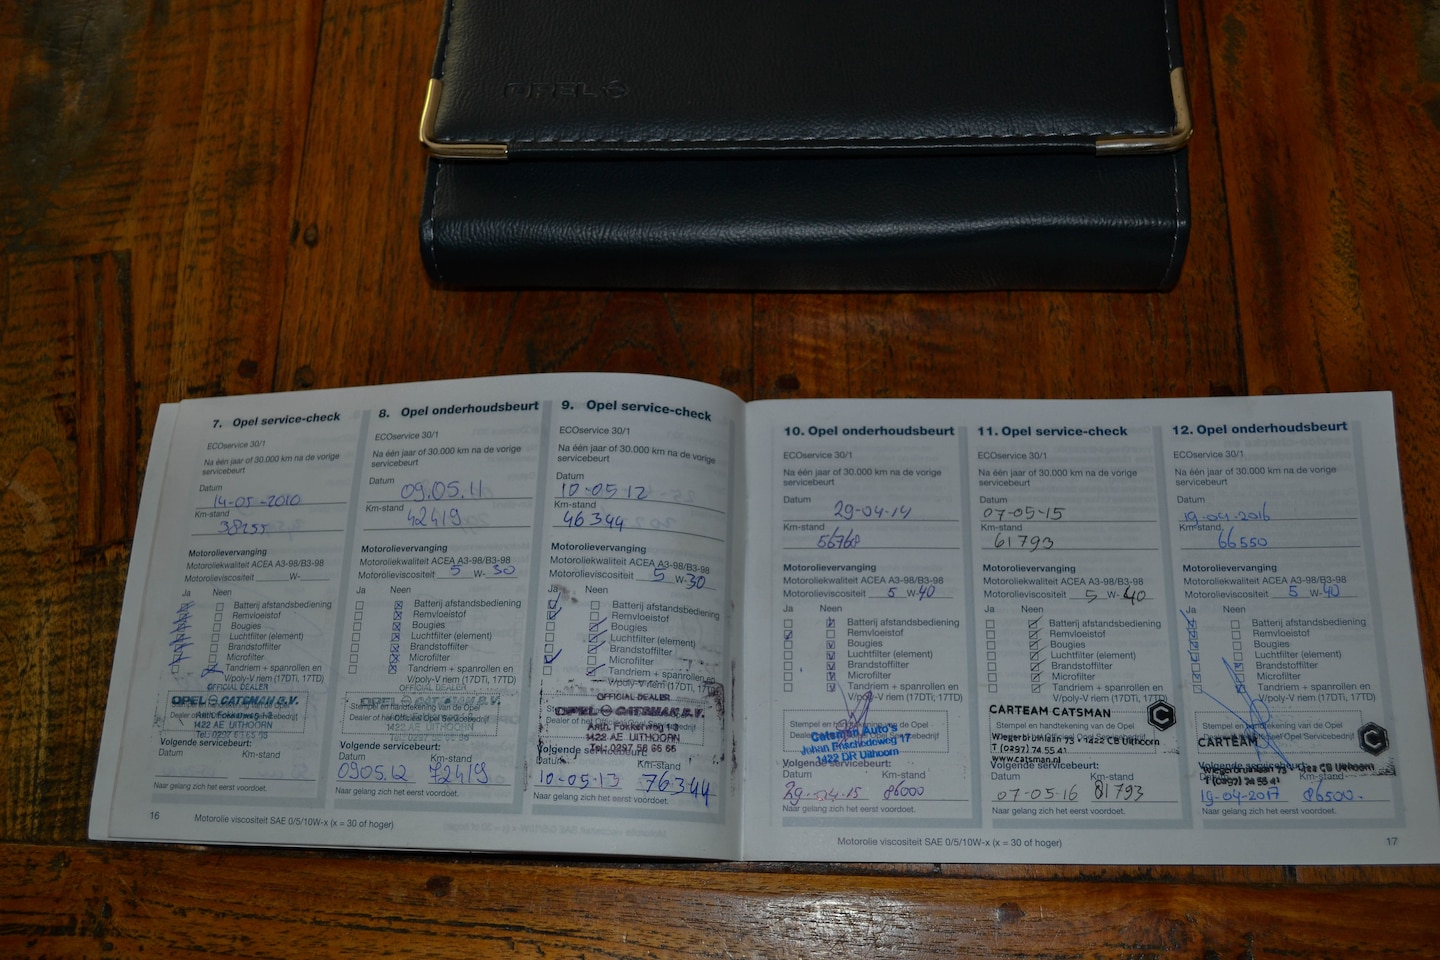 OPEL
7. Opel service-check
ECOservice 30/1
Na één jaar of 30.000 km na de vorige
servicebeurt
Datum
14-05-2010
Km-stand
38255
Motorolievervanging
Motoroliekwaliteit ACEA A3-98/B3-98
Motorolieviscositeit W-
Ja Neen
Batterij afstandsbediening
Remvloeistof
Bougies
Luchtfilter (element)
Brandstoffilter
Microfilter
Tandriem + spanrollen en
V/poly-V riem (17DTi, 17TD)
OFFICIAL DEALER
OPEL CATSMAN B.V.
Stempel en handtekening van de Opel
Dealer of het Officieel Opel Servicebedrijf
1422 AE UITHOORN
Volgende servicebeurt:
Datum Km-stand
Naar gelang zich het eerst voordoet.
16
Motorolie viscositeit SAE 0/5/10W-x (x = 30 of hoger)
8. Opel onderhoudsbeurt
ECOservice 30/1
Na één jaar of 30.000 km na de vorige
servicebeurt
Datum
09.05.11
Km-stand
42419
Motorolievervanging
Motoroliekwaliteit ACEA A3-98/B3-98
Motorolieviscositeit 5 W-30
Ja Neen
Batterij afstandsbediening
Remvloeistof
Bougies
Luchtfilter (element)
Brandstoffilter
Microfilter
Tandriem + spanrollen en
V/poly-V riem (17DTi, 17TD)
OFFICIAL DEALER
OPEL CATSMAN B.V.
Dealer of het Officieel Opel Servicebedrijf
1422 AE UITHOORN
Volgende servicebeurt:
Datum Km-stand
09.05.12 72419
Naar gelang zich het eerst voordoet.
9. Opel service-check
ECOservice 30/1
Na één jaar of 30.000 km na de vorige
servicebeurt
Datum
10-05-12
Km-stand
46344
Motorolievervanging
Motoroliekwaliteit ACEA A3-98/B3-98
Motorolieviscositeit 5 W-30
Ja Neen
Batterij afstandsbediening
Remvloeistof
Bougies
Luchtfilter (element)
Brandstoffilter
Microfilter
Tandriem + spanrollen en
V/poly-V riem (17DTi, 17TD)
OFFICIAL DEALER
OPEL CATSMAN B.V.
Dealer of het Officieel Opel Servicebedrijf
Anth. Fokkerweg 1-3
1422 AE UITHOORN
Tel. 0297 56 65 66
Volgende servicebeurt:
Datum Km-stand
10-05-13 76344
Naar gelang zich het eerst voordoet.
10. Opel onderhoudsbeurt
ECOservice 30/1
Na één jaar of 30.000 km na de vorige
servicebeurt
Datum
29-04-14
Km-stand
56768
Motorolievervanging
Motoroliekwaliteit ACEA A3-98/B3-98
Motorolieviscositeit 5 W-40
Ja Neen
Batterij afstandsbediening
Remvloeistof
Bougies
Luchtfilter (element)
Brandstoffilter
Microfilter
Tandriem + spanrollen en
V/poly-V riem (17DTi, 17TD)
Stempel en handtekening van de Opel
Catsman Auto's
Johan Enschedeweg 17
1422 DR Uithoorn
Volgende servicebeurt:
Datum Km-stand
29-04-15 86000
Naar gelang zich het eerst voordoet.
Motorolie viscositeit SAE 0/5/10W-x (x = 30 of hoger)
11. Opel service-check
ECOservice 30/1
Na één jaar of 30.000 km na de vorige
servicebeurt
Datum
07-05-15
Km-stand
61793
Motorolievervanging
Motoroliekwaliteit ACEA A3-98/B3-98
Motorolieviscositeit 5 W-40
Ja Neen
Batterij afstandsbediening
Remvloeistof
Bougies
Luchtfilter (element)
Brandstoffilter
Microfilter
Tandriem + spanrollen en
V/poly-V riem (17DTi, 17TD)
CARTEAM CATSMAN
Stempel en handtekening van de Opel
Wiegerbruinlaan 73 - 1422 CB Uithoorn
T (0297) 74 55 41
www.catsman.nl
Volgende servicebeurt:
Datum Km-stand
07-05-16 81793
Naar gelang zich het eerst voordoet.
12. Opel onderhoudsbeurt
ECOservice 30/1
Na één jaar of 30.000 km na de vorige
servicebeurt
Datum
19-04-2016
Km-stand
66550
Motorolievervanging
Motoroliekwaliteit ACEA A3-98/B3-98
Motorolieviscositeit 5 W-40
Ja Neen
Batterij afstandsbediening
Remvloeistof
Bougies
Luchtfilter (element)
Brandstoffilter
Microfilter
Tandriem + spanrollen en
V/poly-V riem (17DTi, 17TD)
Stempel en handtekening van de Opel
Dealer of het Officieel Opel Servicebedrijf
CARTEAM
Volgende servicebeurt:
Wiegerbruinlaan 73 - 1422 CB Uithoorn
T (0297) 74 55 41
19-04-2017 86500.
Naar gelang zich het eerst voordoet.
17